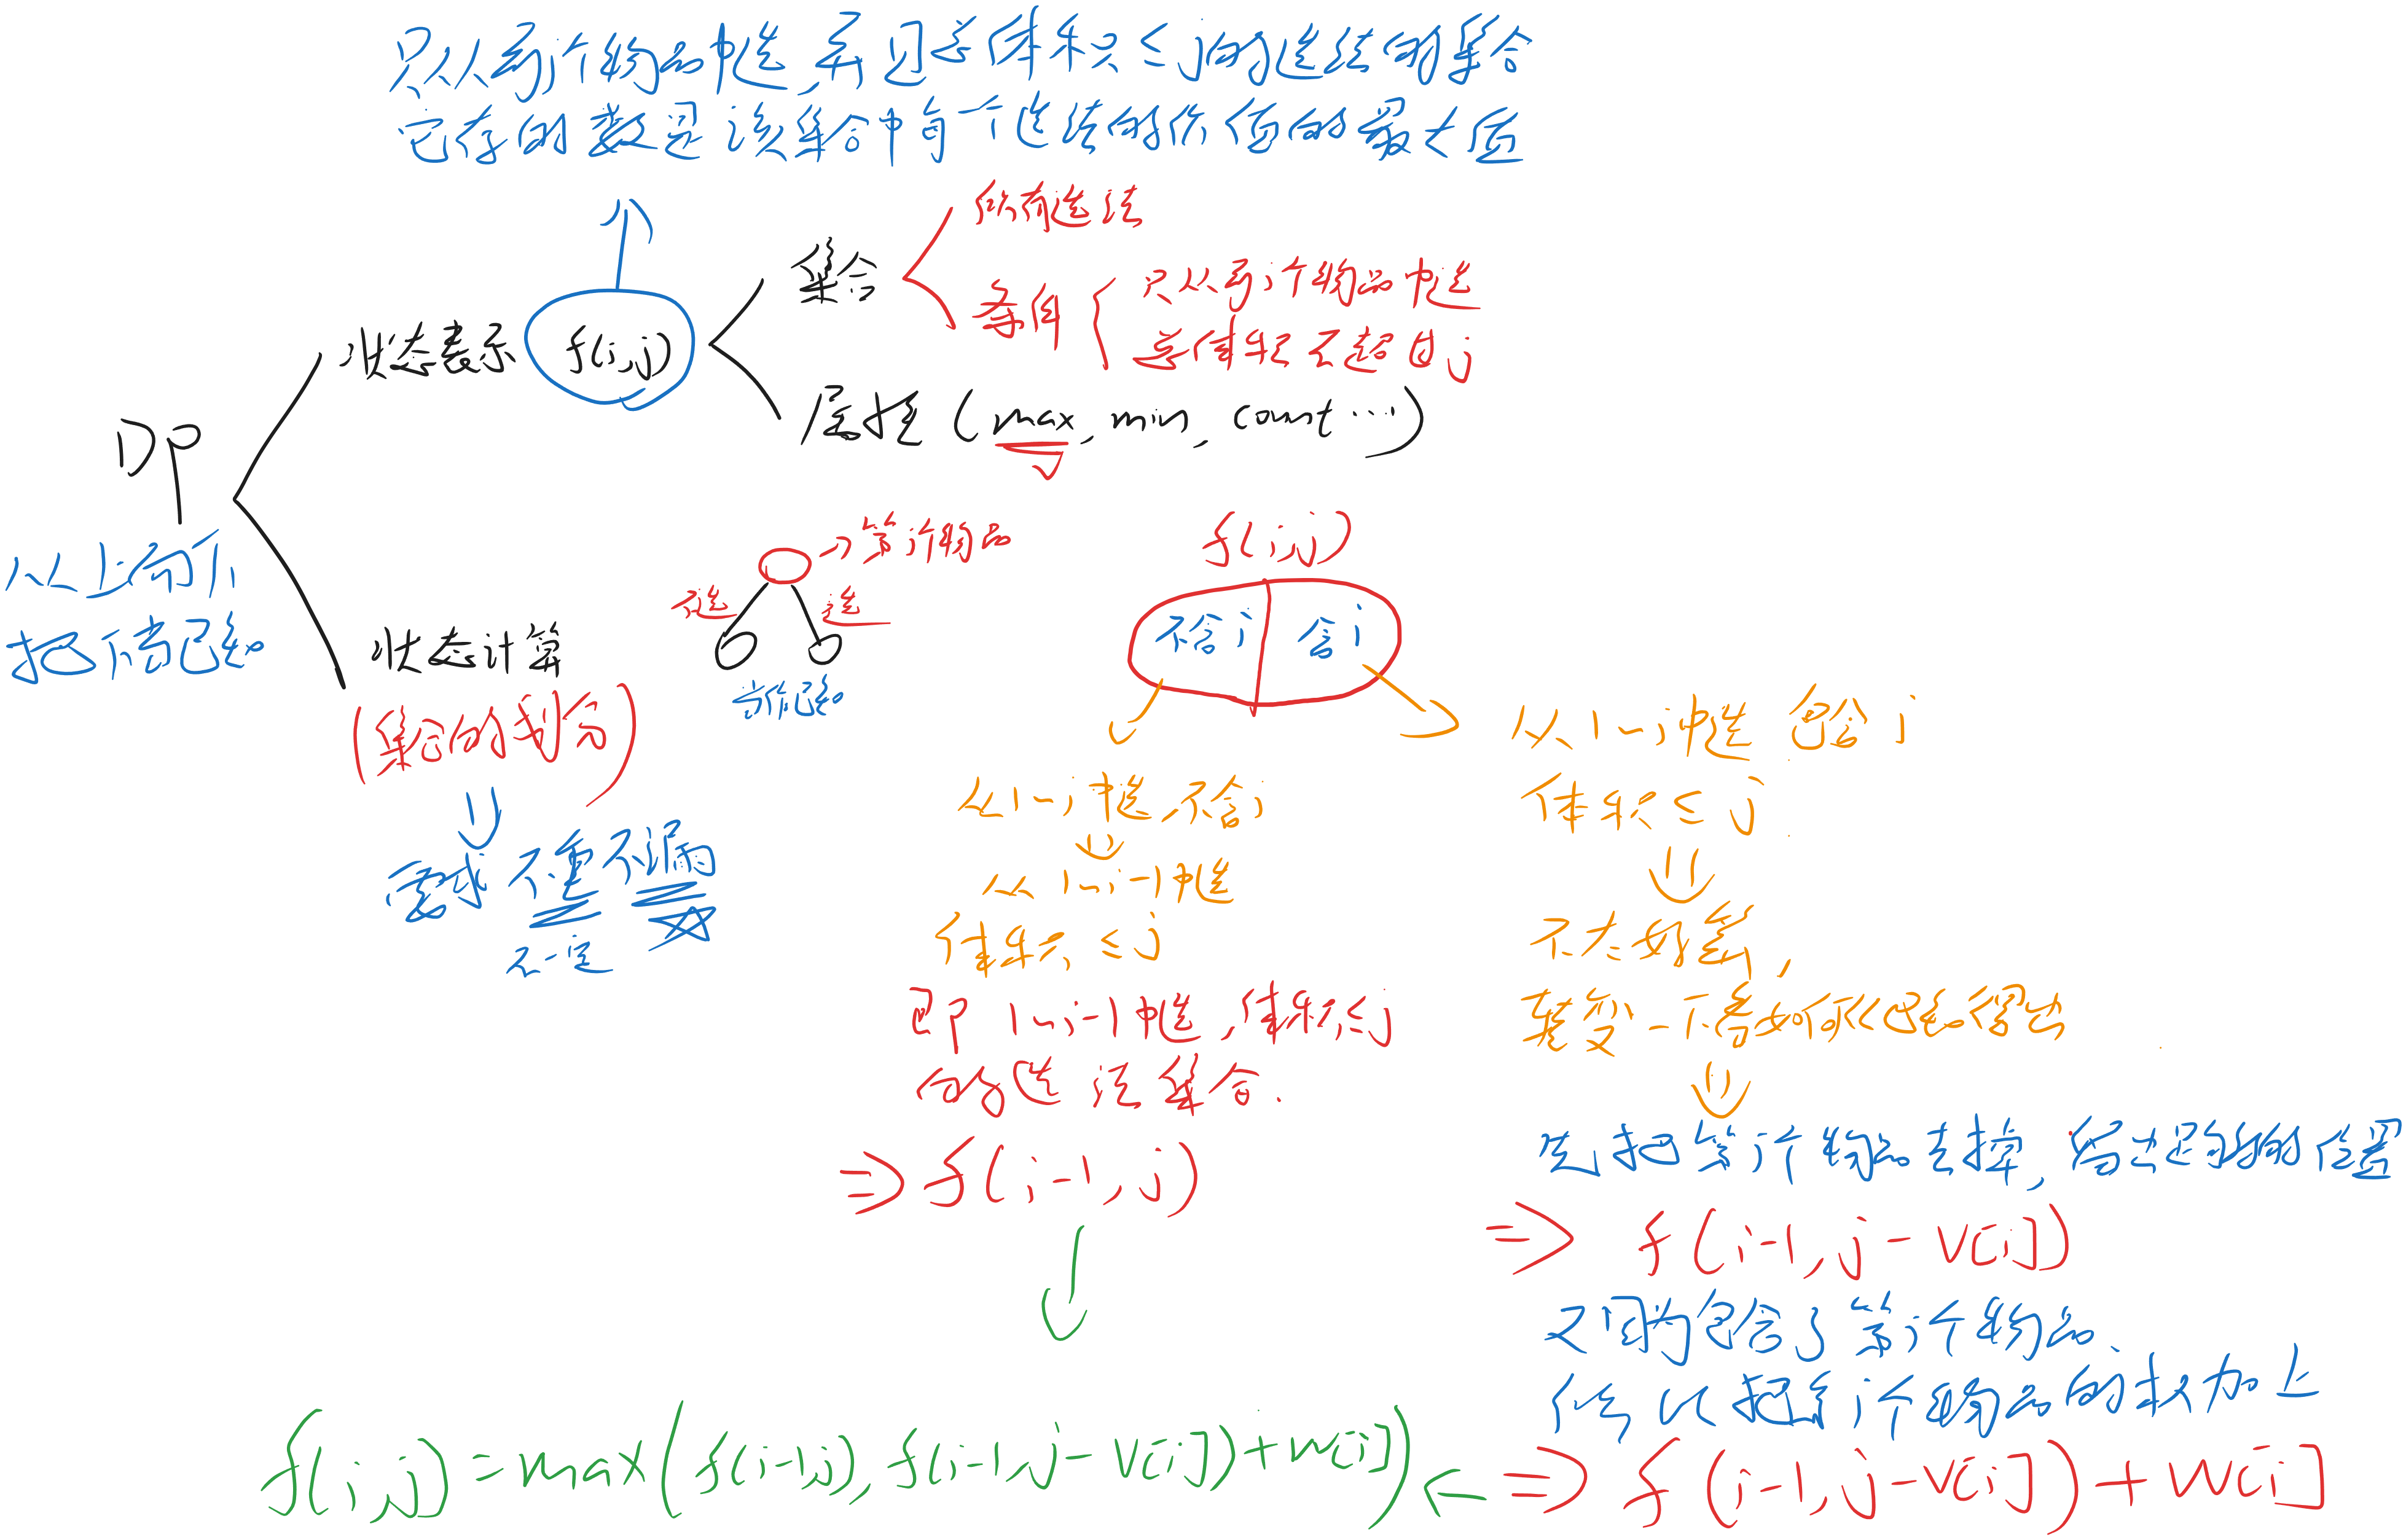 只从前i个物品中选,并且总体积≤j的选法的集合
它存的数是该集合中每个选法的价值的最大值
所有选法
集合
条件
只从前i个物品中选
总体积不超过j
状态表示
f(i,j)
属性(max,min,count…)
DP
从上帝下
把
已知
第i个物品
不选
选
当作已知
状态计算
(集合的划分)
要求 不重不漏
不一定
f(i,j)
不含i
含i
从1~i中选,不含i
从1~i-1中选
体积≤j
即1~i-1中选,体积≤j
的选法集合.
=> f(i-1,j)
从1~i中选 包含i
体积≤j
不太好算,
转变一下看如何从已知得出
先把第i个物品去掉,留出足够的位置
=> f(i-1,j-v[i])
又因为包含了第i个物品、
所以把第i个物品的权加上
=> f(i-1,j-v[i])+w[i]
f(i,j)=max(f(i-1,j),f(i-1,j-v[i])+w[i])